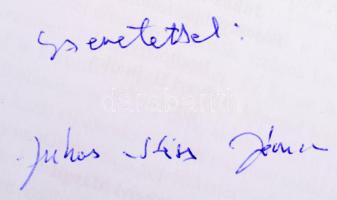 Szeretettel:
Juhos Kiss János